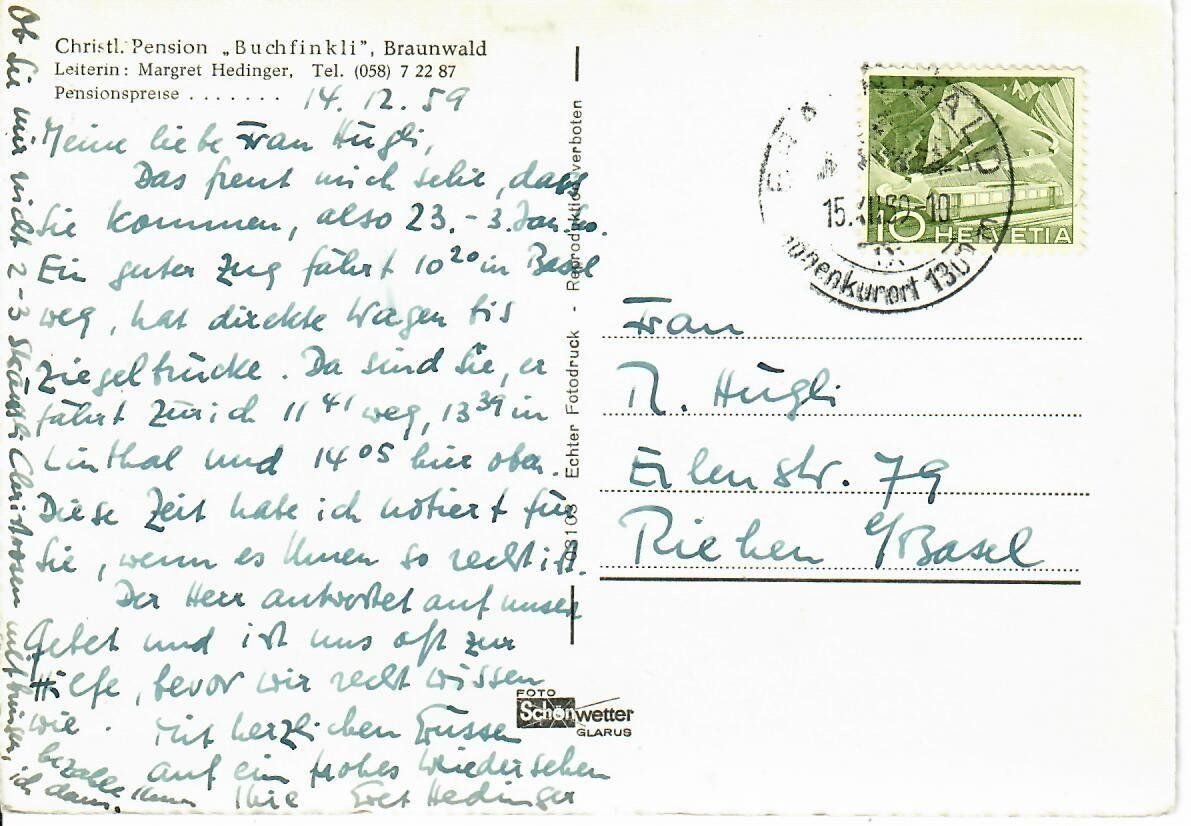 Christl. Pension „Buchfinkli", Braunwald
Leiterin: Margret Hedinger, Tel. (058) 7 22 87
Pensionspreise . . . . . . .
14. 12. 59
Meine liebe Frau Hügli,
Das freut mich sehr, dass
Sie kommen, also 23. - 3. Jan. 60.
Ein guter Zug fährt 10 20 in Basel
weg, hat direkte Wagen bis
Ziegelbrücke. Da sind Sie, er
fährt Zürich 11 41 weg, 13 39 in
Linthal und 14 05 hier oben.
Diese Zeit habe ich notiert für
Sie, wenn es Ihnen so recht ist.
Der Herr antwortet auf unser
Gebet und ist uns oft zur
Hilfe, bevor wir recht wissen
wie. Mit herzlichen Grüssen
auf ein frohes Wiedersehen
Ihre Hedinger
Ob Sie mir nicht 2-3 Christrosen
bezahle Ihnen
dann.
03108 Echter Fotodruck - Reproduktion verboten
FOTO
Schönwetter
GLARUS
15.XII.59-10
Höhenkurort 1300 m
10 HELVETIA
Frau
R. Hügli
Erlenstr. 79
Riehen b/Basel